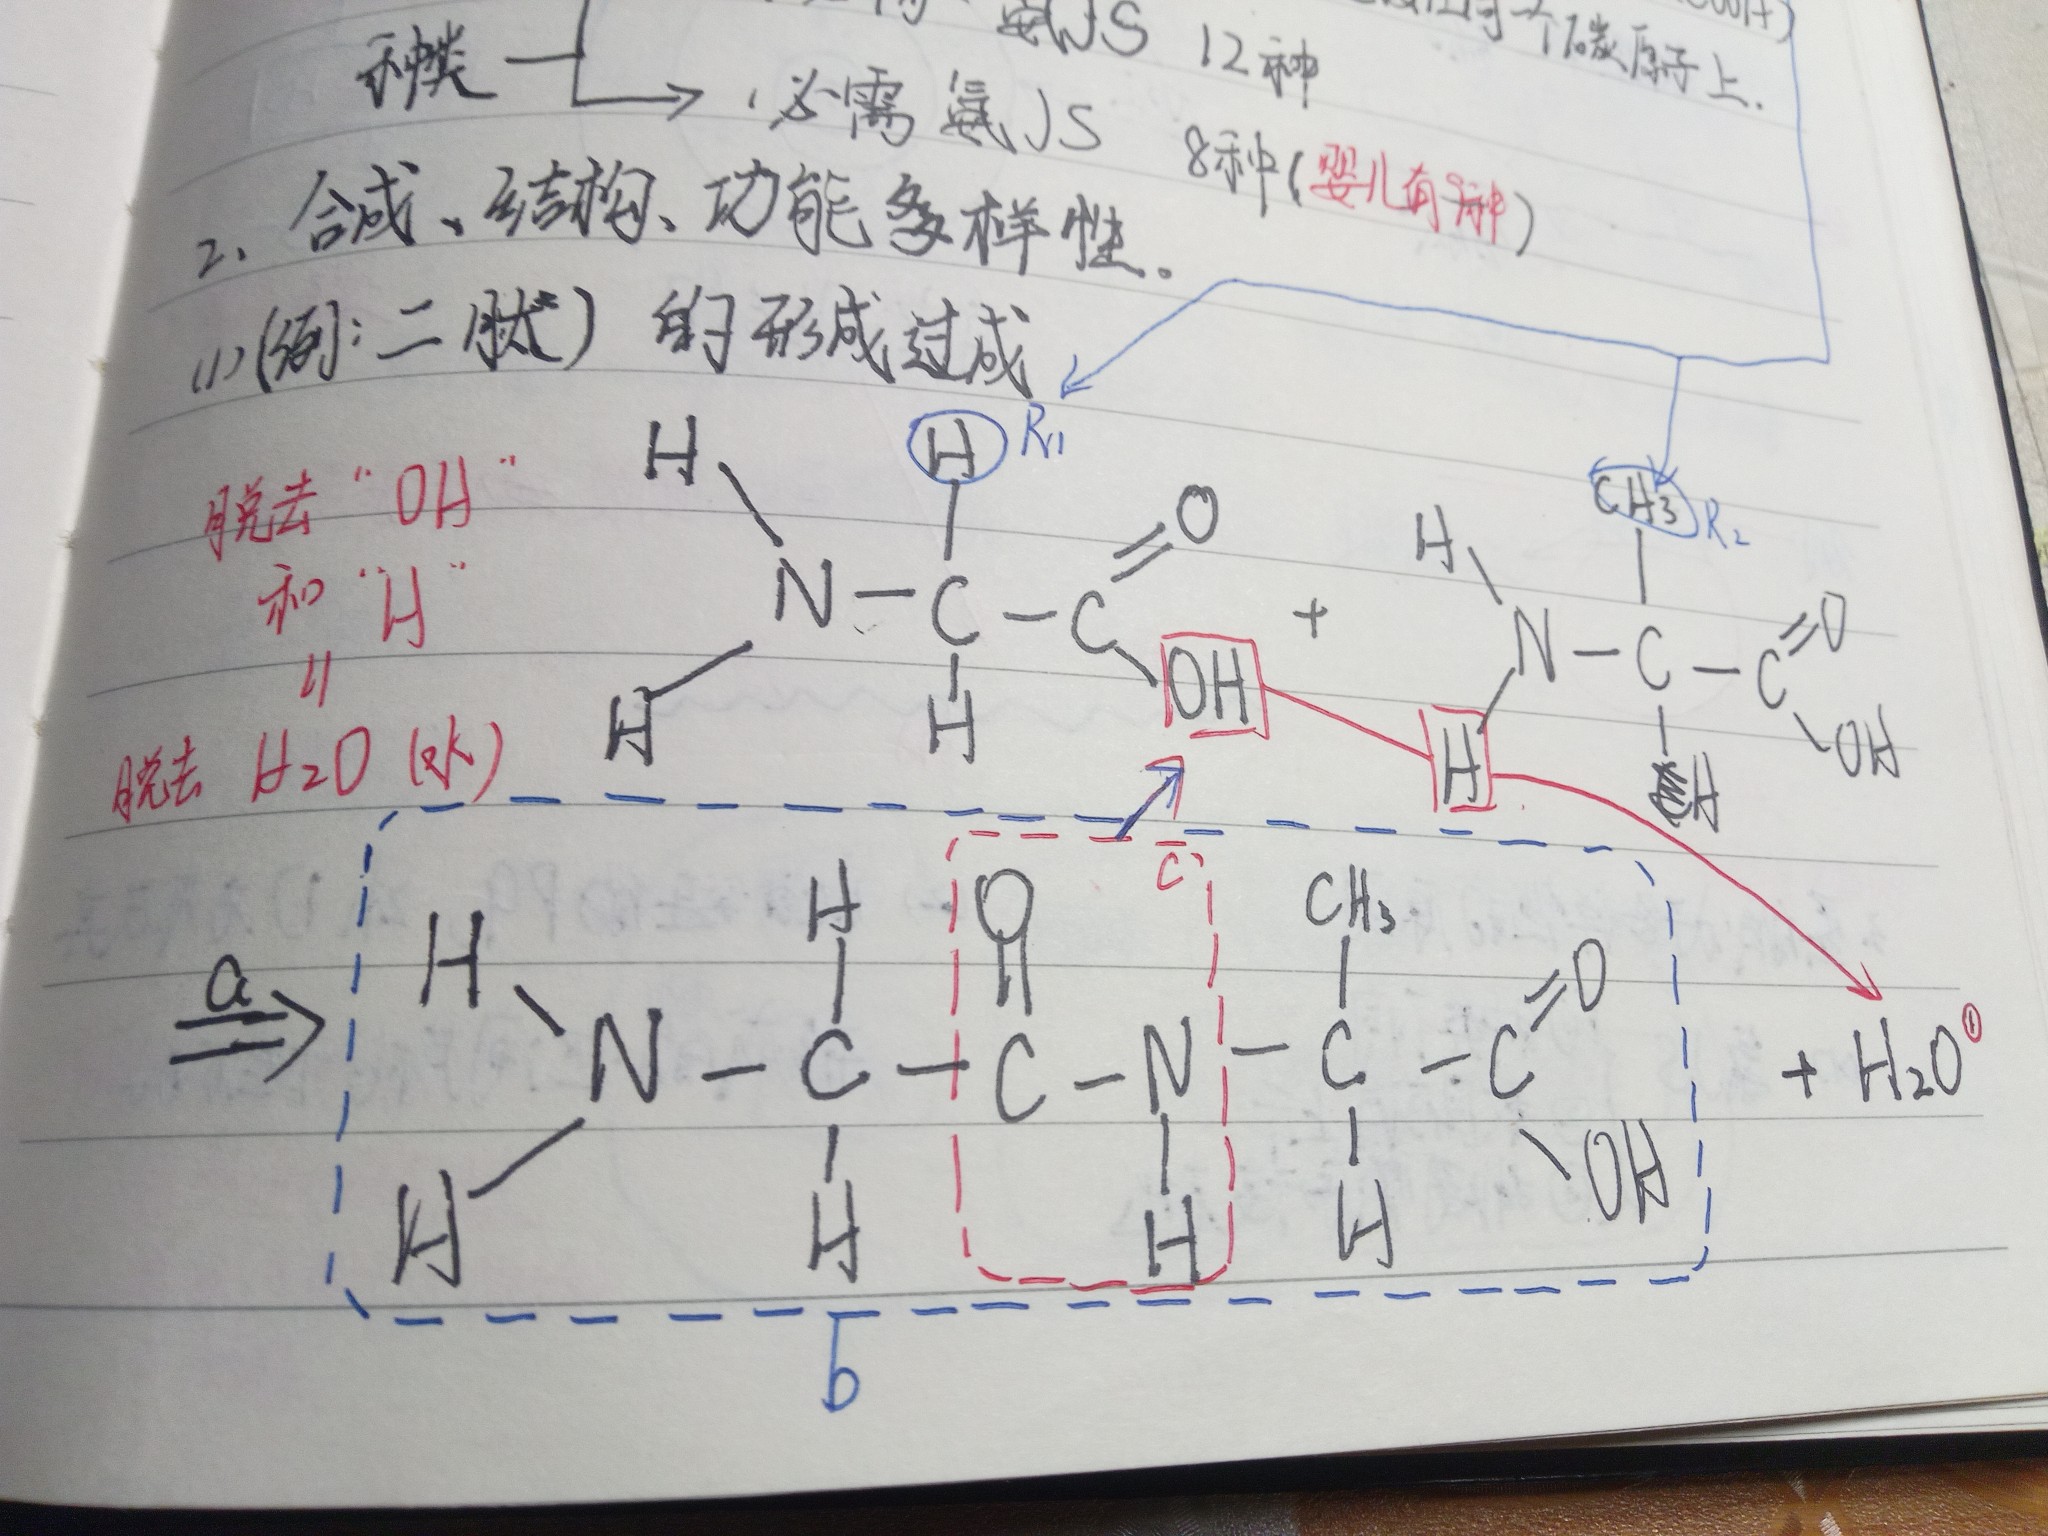 氨JS 12种
一个碳原子上.
种类
必需氨JS 8种(婴儿有9种)
2、合成、结构、功能多样性。
(1)(例:二肽)的形成过成
脱去"OH"
和"H"
脱去 H2O (水)
H H R1
O
N-C-C
H H OH
+
H CH3 R2
N-C-C
O
H H OH
a
b
c
H H O CH3 O
N-C-C-N-C-C
H H H H OH
+ H2O①